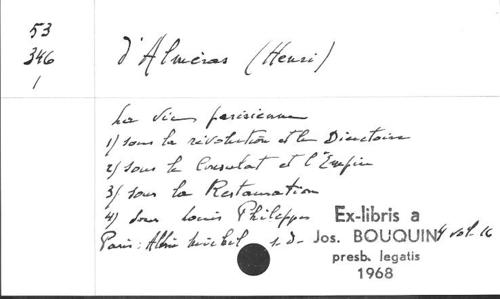 53
346
1
d'Almeras (Henri)
La vie parisienne
1) sous la révolution et le Directoire
2) sous le Consulat et l'Empire
3) sous la Restauration
4) sous Louis Philippe
Paris: Albin Michel s.d. 4 vol. 16
Ex-libris a
Jos. BOUQUIN
presb. legatis
1968